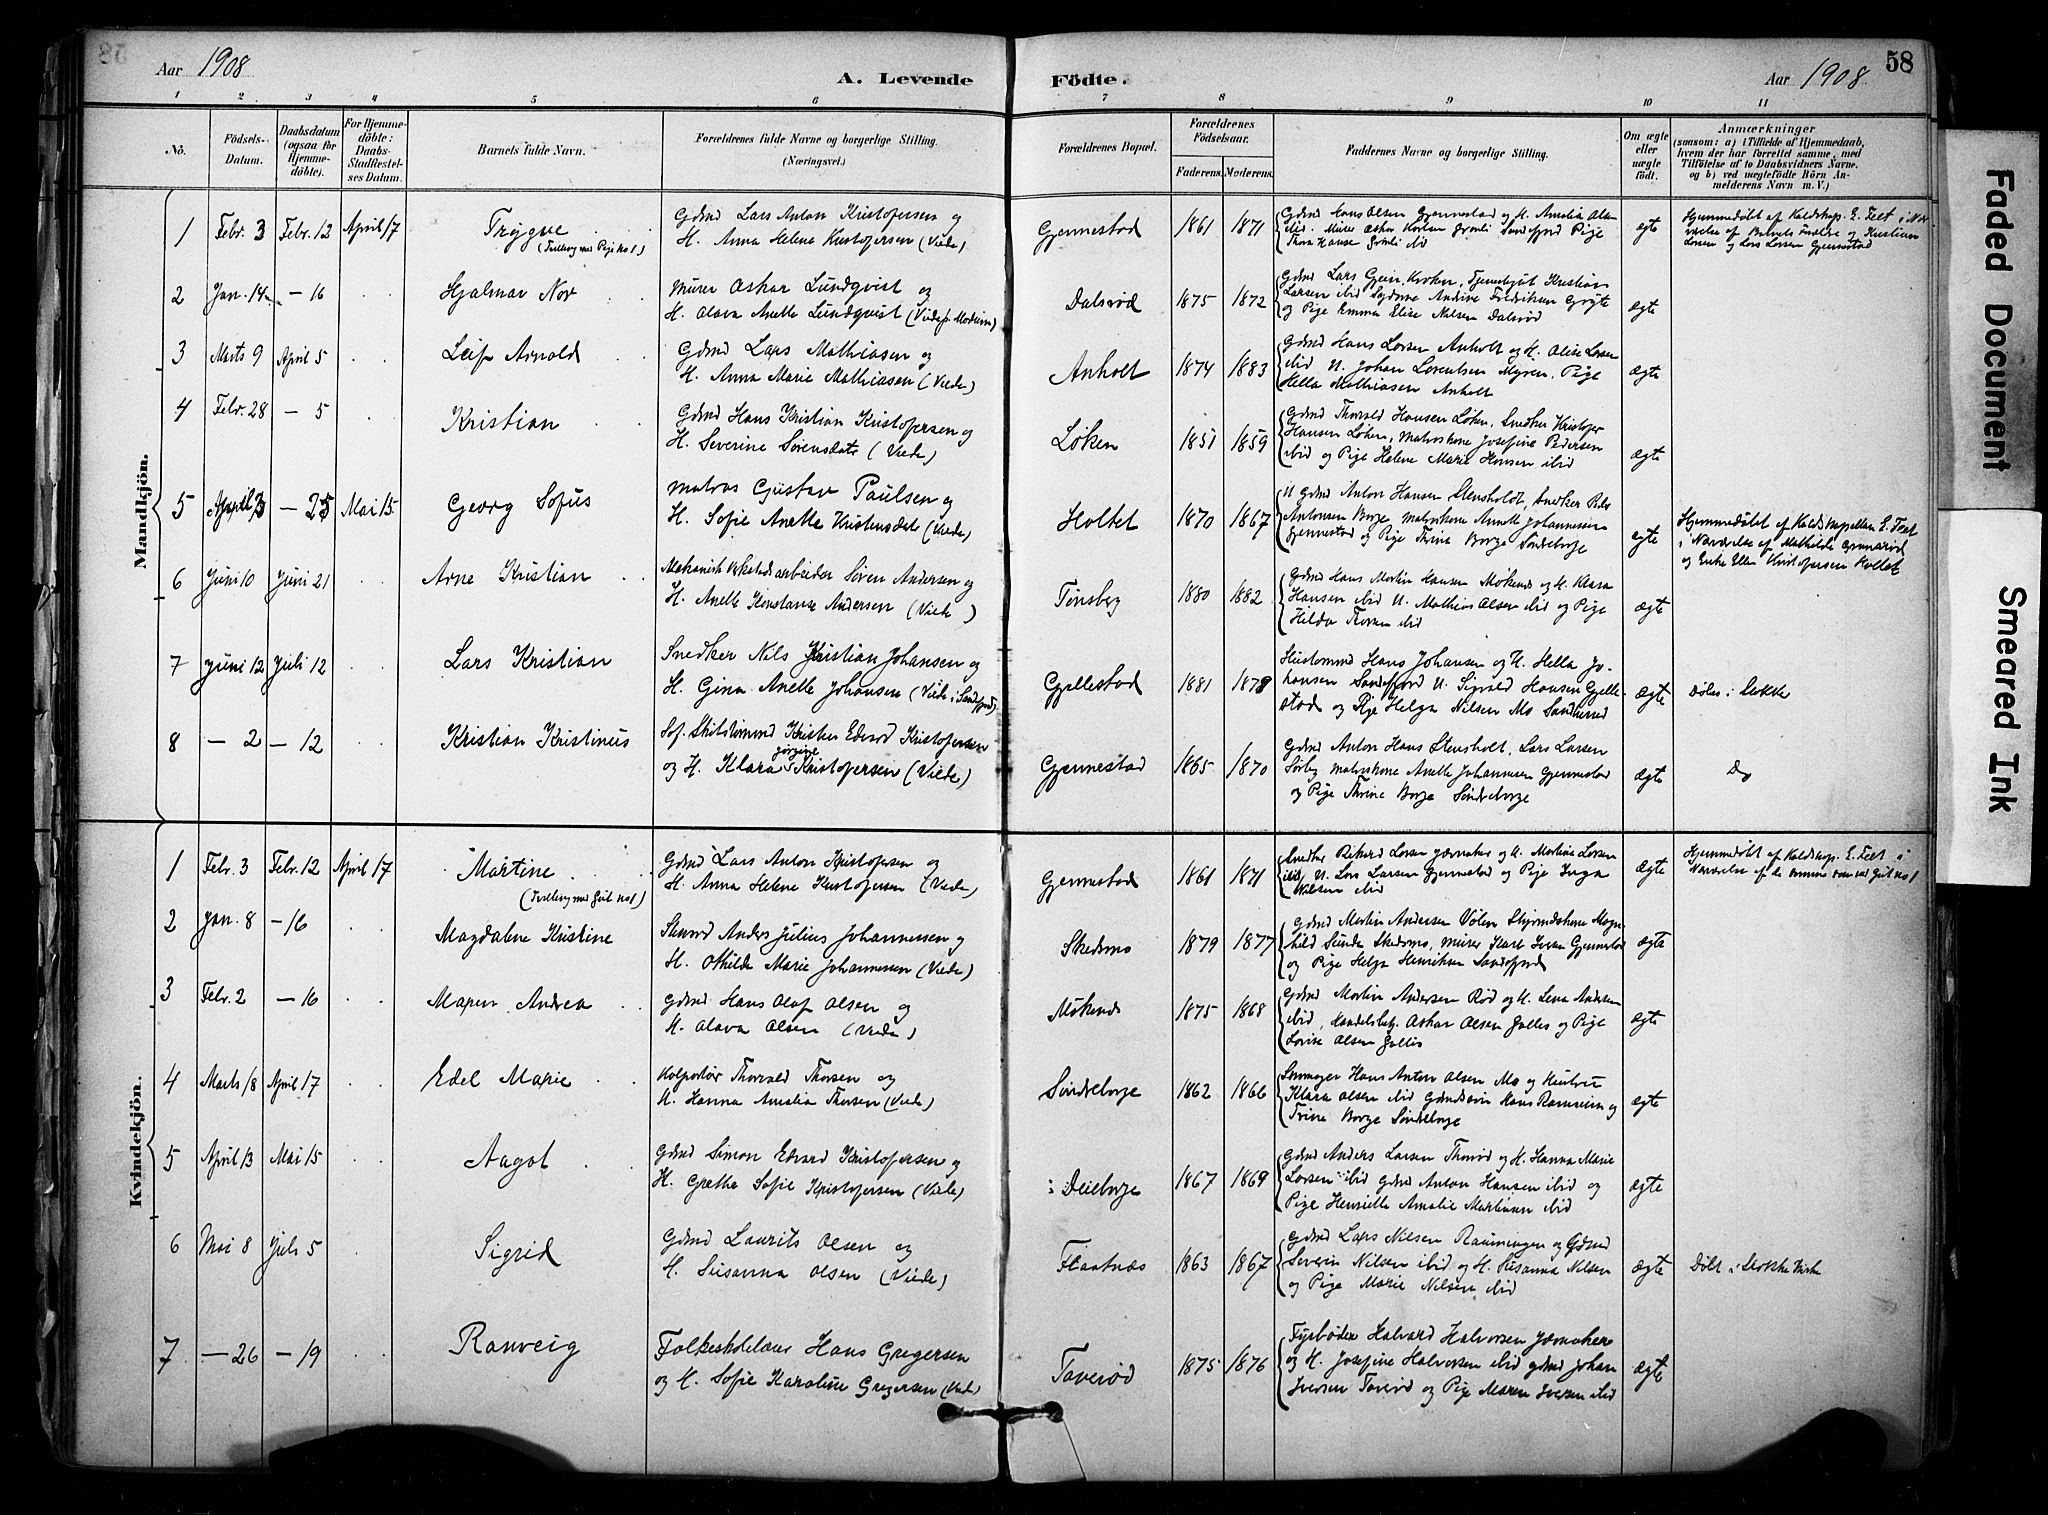 58
Aar 1908
A. Levende
Födte.
Aar 1908
1 2 3 4 5 6 7 8 9 10 11
Nô.
Födsels-
Datum.
Daabsdatum
(ogsaa for
Hjemme-
döbte).
For Hjemme-
döbte:
Daabs-
Stadfæstel-
ses Datum.
Barnets fulde Navn.
Forældrenes fulde Navne og borgerlige Stilling.
(Næringsvei.)
Forældrenes Bopæl.
Forældrenes
Födselsaar.
Faderens. Moderens.
Faddernes Navne og borgerlige Stilling.
Om ægte
eller
uægte
födt.
Anmærkninger
(saasom: a) i Tilfælde af Hjemmedaab,
hvem der har forrettet samme, med
Tilföielse af to Daabsvidners Navne,
og b) ved uægtefödte Börn An-
melderens Navn m. V.)
Mandkjön.
1 Febr. 3 Febr. 12 April 17 Trygve
(Tvilling med Pige no 1)
Gdmd Lars Anton Kristofersen og
H. Anna Helene Kristofersen (Viede)
Gjennestad 1861 1871
Gdmd Hans Olsen Gjennestad og H. Amalia Ol-
ibid. Murer Oskar Karlsen Sandefjord Pige
Thora Hansen ibid
ægte
Hjemmedøbt af Kaldskap. E. Feet i Nær
værelse af Barnets Fædre og Kristian
Larsen og Lars Larsen Gjennestad
2 Jan. 14 – 16 Hjalmar Nor
Murer Oskar Lundqvist og
H. Olava Anette Lundqvist (Viede p. Modum)
Dalsrød 1875 1872
Gdmd Lars Geein Kroken, Kristian
Larsen ibid Andrine Fredriksen
og Pige Emma Elise Nilsen Dalsrød
ægte
3 Marts 9 April 5 Leif Arnold
Gdmd Lars Mathiasen og
H. Anna Marie Mathiasen (Viede)
Anholt 1874 1883
Gdmd Hans Larsen Anholt og H. Olise Larsen
ibid U. Johan Lorentsen Myren, Pige
Hella Mathiasen Anholt
ægte
4 Febr. 28 – 5 Kristian
Gdmd Hans Kristian Kristofersen og
H. Severine Sørensdatr (Viede)
Løken 1851 1859
Gdmd Thorvald Hansen Løken, Snedker Kristofer
Hansen Løken, Matroskone Josefine Pedersen
ibid og Pige Helene Marie Hansen ibid
ægte
5 April 3 – 25 Mai 15 Georg Sofus
Matros Gustav Paulsen og
H. Sofie Anette Kristensdatr (Viede)
Holtet 1870 1867
U Gdmd Anton Hansen Stensholdt, Snedker
Antonsen Borge Matroskone Anette Johannesen
Gjennestad og Pige Trina Borge Søndreborge
ægte
Hjemmedøbt af Kaldskapellan E. Feet
i Nærværelse af Mathilde
og Enke Ellen Kristofersen Holtet
6 Juni 10 Juni 21 Arne Kristian
Mekanisk Verkstedsarbeider Søren Andersen og
H. Anette Konstanse Andersen (Viede)
Tønsberg 1880 1882
Gdmd Hans Martin Hansen Møkenes og H. Klara
Hansen ibid U. Mathias Olsen ibid og Pige
Hilda Thorsen ibid
ægte
7 Juni 12 Juli 12 Lars Kristian
Snedker Nils Kristian Johansen og
H. Gina Anette Johansen (Viede i Sandefjord)
Gjellestad 1881 1878
Husmand Hans Johansen og H. Hella Jo-
hansen Sandefjord U. Sigvald Hansen Gjelle-
stad og Pige Helga Nilsen Mo Sandherred
ægte
Døbt i Stokke
8 – 2 – 12 Kristian Kristinus
Kristen Edvard Kristofersen
og H. Klara Jørgine Kristofersen (Viede)
Gjennestad 1865 1870
Gdmd Anton Hans Stensholt, Lars Larsen
Sørby Matroskone Anette Johannesen Gjennestad
og Pige Thrine Borge Søndreborge
ægte
Do
Kvindekjön.
1 Febr. 3 Febr. 12 April 17 Martine
(Tvilling med Gut no 1)
Gdmd Lars Anton Kristofersen og
H. Anna Helene Kristofersen (Viede)
Gjennestad 1861 1871
Snedker Rikard Larsen Jærnaker og H. Martina Larsen
ibid, U. Lars Larsen Gjennestad og Pige Inga
Nilsen ibid
ægte
Hjemmedøbt af Kaldskap. E. Feet i
Nærværelse af de samme som ved Gut no 1
2 Jan. 8 – 16 Magdalene Kristine
Anders Julius Johannessen og
H. Othilde Marie Johannessen (Viede)
Skedsmo 1879 1877
Gdmd Martin Andersen Vølen Mag-
hild Sunde Skedsmo, Murer Karl Iversen Gjennestad
og Pige Helga Henriksen Sandefjord
ægte
3 Febr. 2 – 16 Maren Andrea
Gdmd Hans Olaf Olsen og
H. Olava Olsen (Viede)
Møkenes 1875 1868
Gdmd Martin Andersen Rød og H. Lena Andersen
ibid, Handelsbetj. Oskar Olsen Gallis og Pige
Lovise Olsen Gallis
ægte
4 Marts 18 April 17 Edel Marie
Kolportør Thorvald Thorsen og
H. Hanna Amalia Thorsen (Viede)
Søndreborge 1862 1866
Hans Anton Olsen Mo og Hustru
Klara Olsen ibid Gdmdssøn Hans Ramseim og
Trine Borge Søndreborge
ægte
5 April 13 Mai 15 Aagot
Gdmd Simon Edvard Kristofersen og
H. Grethe Sofie Kristofersen (Viede)
Deieborge 1867 1869
Gdmd Anders Larsen Thorød og H. Hanna Marie
Larsen ibid Gdmd Anton Hansen ibid og
Pige Henriette Amalie Martinsen ibid
ægte
6 Mai 8 Juli 5 Sigrid
Gdmd Laurits Olsen og
H. Susanna Olsen (Viede)
Flaatnæs 1863 1867
Gdmd Lars Nilsen Rauningen og Gdmd
Severin Nilsen ibid og H. Susanna Nilsen
og Pige Marie Nilsen ibid
ægte
Døbt i Stokke Kirke
7 – 26 – 19 Ranveig
Folkeskolelærer Hans Gregersen
og H. Sofie Karoline Gregersen (Viede)
Taverød 1875 1876
Fyrbøder Halvard Halvorsen Jærnaker
og H. Josefine Halvorsen ibid Gdmd Johan
Iversen Taverød og Pige Maren Iversen ibid
ægte
Faded Document
Smeared Ink